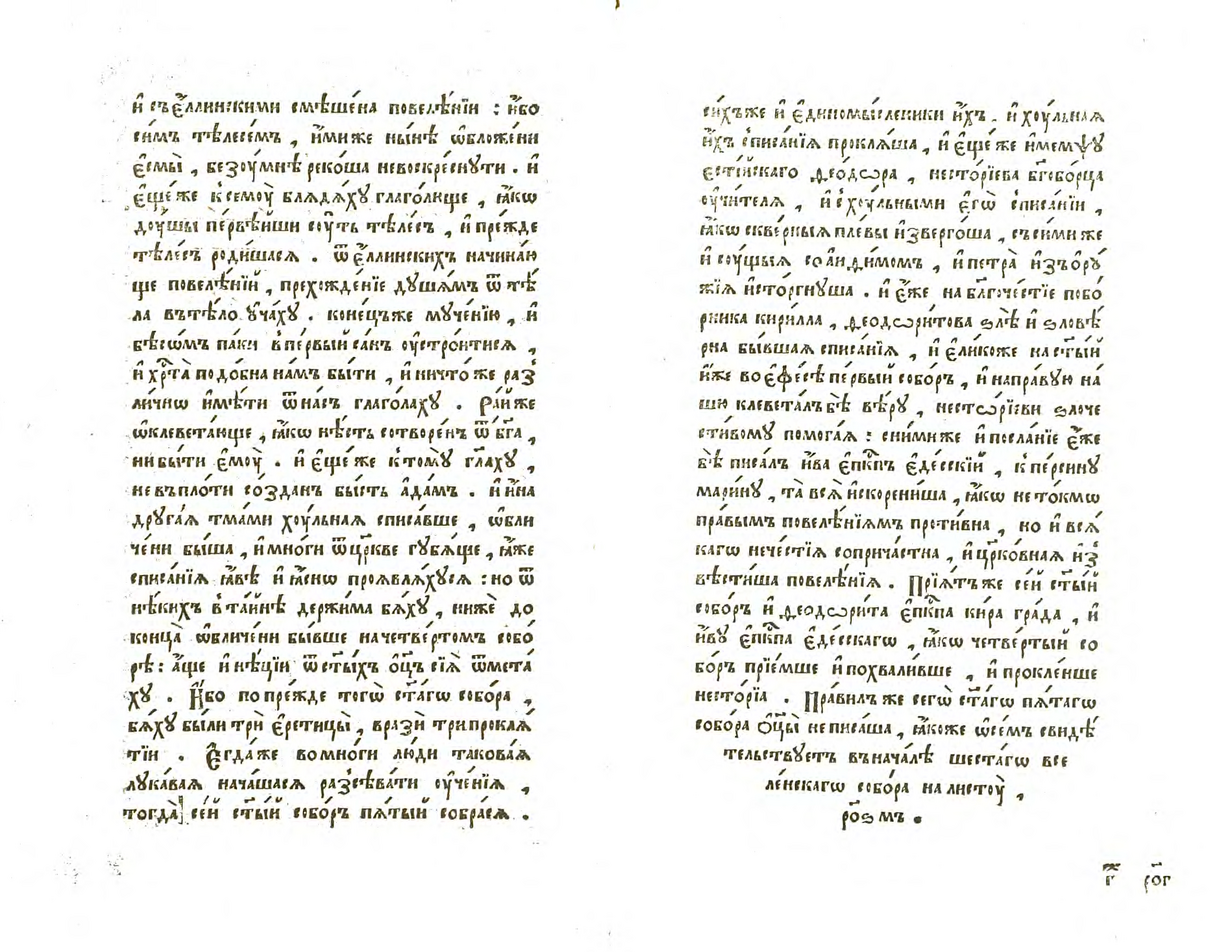 и҆ съє҆́ллинскими смѣше́на повелѣ́нїи : и҆́бо
си́мъ тѣлесе́мъ , и҆́миже ны́нѣ ѡ҆бложе́ни
є҆смы̀ , безꙋ́мнѣ реко́ша невоскре́снꙋти . и҆
є҆ще́ же к̾ семоу̀ блѧдѧ́хꙋ глаго́люще , ꙗ҆́кѡ
доу́шы пе́рвѣйши соу́ть тѣле́съ , и҆ пре́жде
тѣле́съ роди́шасѧ . ѿ є҆́ллинскихъ начина́ю
ще повелѣ́нїй , прехожде́нїе дꙋша́мъ ѿ тѣ́
ла въ тѣ́ло ᲂу҆ча́хꙋ . коне́цъже мꙋче́нїю , и҆
бѣсѡ́мъ па́ки в̾ пе́рвый са́нъ ᲂу҆стро́итисѧ ,
и҆ хрⷭ҇та̀ подо́бна на́мъ бы́ти , и҆ ничто́ же ра́з
ли́чнѡ и҆мѣ́ти ѿ на́съ глаго́лахꙋ . Ра́й же
ѡ҆клевета́юще , ꙗ҆́кѡ нѣ́сть сотворе́нъ ѿ бг҃а ,
ни бы́ти є҆моу̀ . и҆ є҆ще́ же к̾ томꙋ̀ гл҃ахꙋ ,
не въ пло́ти со́зданъ бы́сть а҆да́мъ . и҆ и҆́на
дрꙋга́ѧ тма́ми хоу́льнаѧ списа́вше , ѡ҆бли
че́ни бы́ша , и҆ мно́ги ѿ цр҃кве гꙋбѧ́ще , ꙗ҆̀же
списа́нїѧ ꙗ҆́вѣ и҆ ꙗ҆́снѡ проѧвлѧ́хꙋсѧ : но ѿ
нѣ́кихъ в̾ та́йнѣ держи́ма бѧ́хꙋ , нижѐ до
конца̀ ѡ҆бличе́ни бы́вше на четве́ртомъ собо́
рѣ : а҆́ще и҆ нѣ́цїи ѿ ст҃ы́хъ ѻ҆ц҃ъ сїѧ̀ ѿмета́
хꙋ . И҆́бо по пре́жде тогѡ̀ ст҃а́гѡ собо́ра ,
бѧ́хꙋ бы́ли трѝ є҆рети́цы , вразѝ трипроклѧ́
тїи . Є҆гда́же во мно́ги лю́ди такова́ѧ
лꙋка́ваѧ нача́шасѧ разсѣва́ти ᲂу҆че́нїѧ ,
тогда̀ се́й ст҃ы́й собо́ръ пѧ́тый собра́сѧ .
си́хъже и҆ є҆диномы́сленники и҆́хъ . и҆ хоу́льнаѧ
и҆́хъ списа́нїѧ проклѧ́ша , и҆ є҆ще́ же и҆ мемѱꙋ
є҆сти́йскаго ѳео́дѡра , несто́рїева бг҃обо́рца
ᲂу҆чи́телѧ , и҆ с̾ хоу́льными є҆гѡ̀ списа́нїи ,
ꙗ҆́кѡ скве́рныѧ пле́вы и҆зверго́ша , съ си́ми же
и҆ соу́щыѧ со а҆нѳи́момъ , и҆ петра̀ и҆зъ ѻ҆рꙋ́
жїѧ и҆сто́ргнꙋша . и҆ є҆́же на бл҃гоче́стїе побо́
рника кири́лла , ѳеодѡри́това ѕлѣ̀ и҆ ѕловѣ́
рна бы́вшаѧ списа́нїѧ , и҆ є҆ли́коже на ст҃ы́й
и҆́же во є҆фе́сѣ пе́рвый собо́ръ , и҆ на пра́вꙋю на́
шю клевета́лъ бѣ̀ вѣ́рꙋ , нестѡ́рїеви ѕлоче
сти́вомꙋ помога́ѧ : сни́миже и҆ посла́нїе є҆́же
бѣ̀ писа́лъ и҆́ва є҆пⷭ҇кпъ є҆де́сскїй , к̾ пе́рсинꙋ
мари́нꙋ , та̀ всѧ̀ и҆скорени́ша , ꙗ҆́кѡ не то́кмѡ
пра́вымъ повелѣ́нїѧмъ проти́вна , но и҆ всѧ́
кагѡ нече́стїѧ соприча́стна , и҆ цр҃ко́внаѧ и҆з̾
вѣсти́ша повелѣ́нїѧ . Прїѧ́тъ же се́й ст҃ы́й
собо́ръ и҆ ѳеодѡри́та є҆пⷭ҇кпа ки́ра гра́да , и҆
и҆́вꙋ є҆пⷭ҇кпа є҆де́сскагѡ , ꙗ҆́кѡ четве́ртый со
бо́ръ прїе́мше и҆ похвали́вше , и҆ прокле́нше
несто́рїа . Пра́вилъ же сегѡ̀ ст҃а́гѡ пѧ́тагѡ
собо́ра ѻ҆ц҃ы̀ не писа́ша , ꙗ҆́коже ѡ҆ се́мъ свидѣ́
тельствꙋетъ въ нача́лѣ шеста́гѡ все
ле́нскагѡ собо́ра на листоу̀ ,
ро́ѕ мъ .
г҃ ро҃г